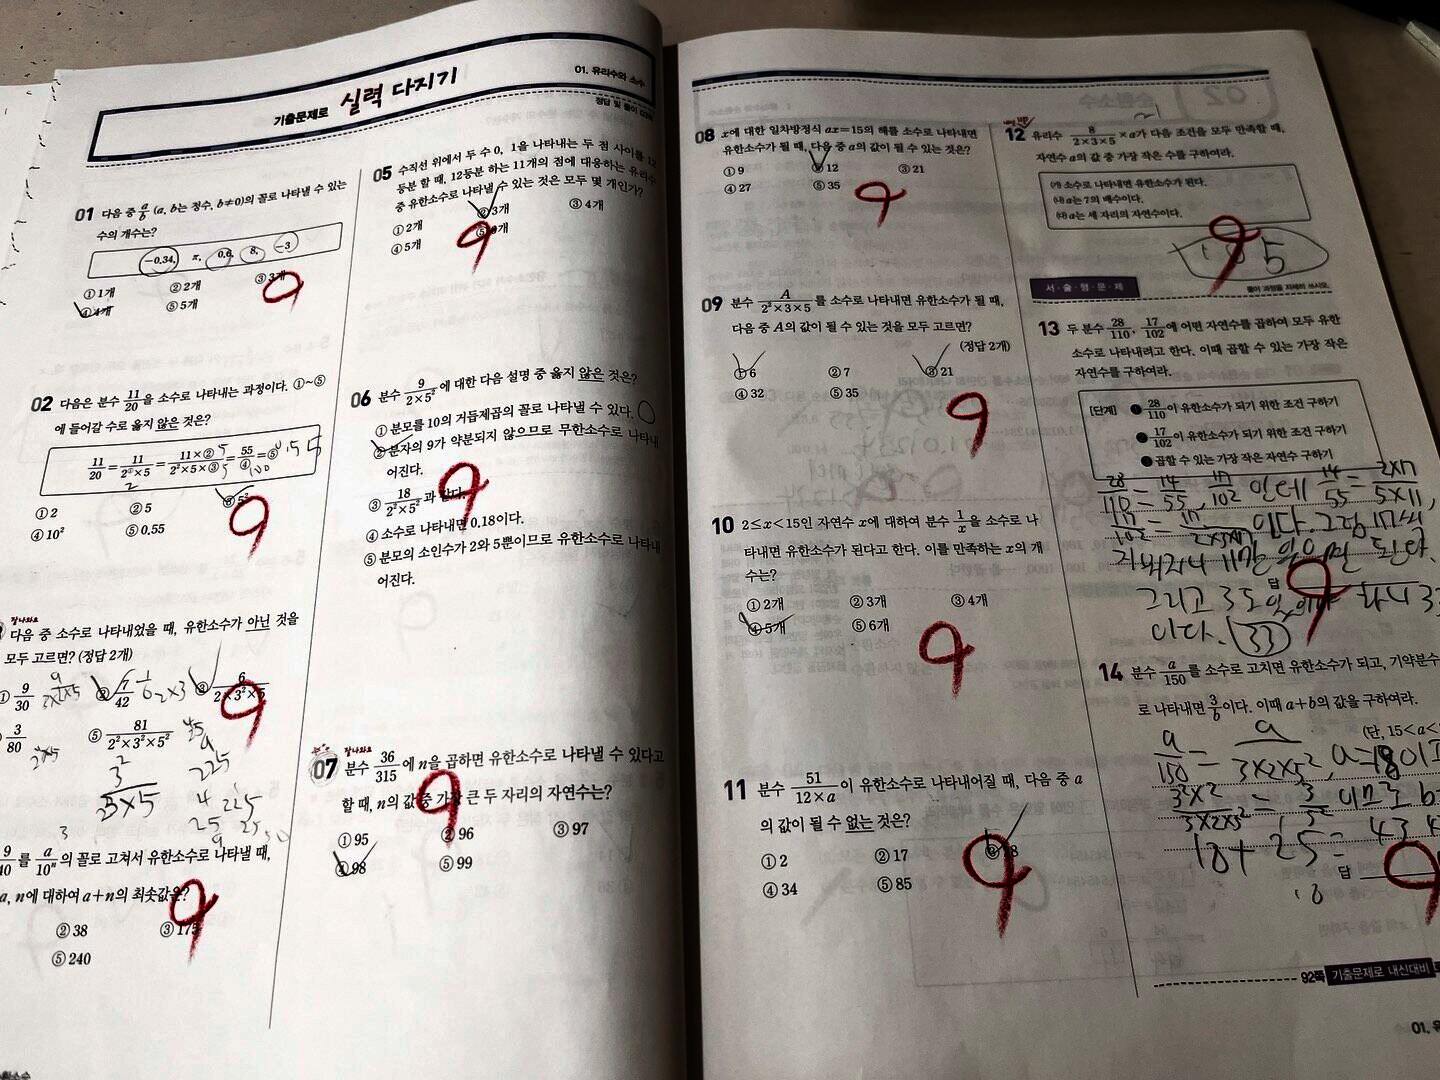 기출문제로 실력 다지기
01. 유리수와 소수
정답 및 풀이
01 다음 중 a/b (a, b는 정수, b≠0)의 꼴로 나타낼 수 있는
수의 개수는?
-0.34, π, 0.6, 8, -3
① 1개 ② 2개 ③ 3개
④ 4개 ⑤ 5개
02 다음은 분수 11/20을 소수로 나타내는 과정이다. ①~⑤
에 들어갈 수로 옳지 않은 것은?
11/20 = 11/(2^①×5) = (11×②)/(2²×5×③) = 55/④ = ⑤
① 2 ② 5 ③ 5²
④ 10² ⑤ 0.55
잘나와요
다음 중 소수로 나타내었을 때, 유한소수가 아닌 것을
모두 고르면? (정답 2개)
① 9/30 ② 7/42 ③ 6/(2×3²×5)
3/80 ⑤ 81/(2²×3²×5²)
3²/(3×5)
225
를 a/10ⁿ의 꼴로 고쳐서 유한소수로 나타낼 때,
a, n에 대하여 a+n의 최솟값은?
② 38 ③ 175
⑤ 240
05 수직선 위에서 두 수 0, 1을 나타내는 두 점 사이를 12
등분 할 때, 12등분 하는 11개의 점에 대응하는 유리수
중 유한소수로 나타낼 수 있는 것은 모두 몇 개인가?
① 2개 ② 3개 ③ 4개
④ 5개 ⑤
06 분수 9/(2×5²)에 대한 다음 설명 중 옳지 않은 것은?
① 분모를 10의 거듭제곱의 꼴로 나타낼 수 있다.
② 분자의 9가 약분되지 않으므로 무한소수로 나타내
어진다.
③ 18/(2²×5²)과 같다.
④ 소수로 나타내면 0.18이다.
⑤ 분모의 소인수가 2와 5뿐이므로 유한소수로 나타내
어진다.
잘나와요
07 분수 36/315에 n을 곱하면 유한소수로 나타낼 수 있다고
할 때, n의 값 중 가장 큰 두 자리의 자연수는?
① 95 ② 96 ③ 97
④ 98 ⑤ 99
08 x에 대한 일차방정식 ax=15의 해를 소수로 나타내면
유한소수가 될 때, 다음 중 a의 값이 될 수 있는 것은?
① 9 ② 12 ③ 21
④ 27 ⑤ 35
09 분수 A/(2²×3×5)를 소수로 나타내면 유한소수가 될 때,
다음 중 A의 값이 될 수 있는 것을 모두 고르면?
(정답 2개)
① 6 ② 7 ③ 21
④ 32 ⑤ 35
10 2≤x<15인 자연수 x에 대하여 분수 1/x을 소수로 나
타내면 유한소수가 된다고 한다. 이를 만족하는 x의 개
수는?
① 2개 ② 3개 ③ 4개
④ 5개 ⑤ 6개
11 분수 51/(12×a)이 유한소수로 나타내어질 때, 다음 중 a
의 값이 될 수 없는 것은?
① 2 ② 17 ③
④ 34 ⑤ 85
12 유리수 8/(2×3×5)×a가 다음 조건을 모두 만족할 때,
자연수 a의 값 중 가장 작은 수를 구하여라.
㈎ 소수로 나타내면 유한소수가 된다.
㈏ a는 7의 배수이다.
㈐ a는 세 자리의 자연수이다.
서·술·형·문·제
풀이 과정을 자세히 쓰시오.
13 두 분수 28/110, 17/102에 어떤 자연수를 곱하여 모두 유한
소수로 나타내려고 한다. 이때 곱할 수 있는 가장 작은
자연수를 구하여라.
[단계] ❶ 28/110이 유한소수가 되기 위한 조건 구하기
❷ 17/102이 유한소수가 되기 위한 조건 구하기
❸ 곱할 수 있는 가장 작은 자연수 구하기
28/110 = 14/55, 17/102 인데 14/55 = 2×7/5×11,
17/102 = 17/2×3×17 이다. 그럼 17씩
지워지니 11만 있으면 된다.
답
그리고 3도 있어야 하니 33
이다. 33
14 분수 a/150를 소수로 고치면 유한소수가 되고, 기약분수
로 나타내면 3/b이다. 이때 a+b의 값을 구하여라.
a/150 = a/3×2×5², a=18이고
3²×2/3×2×5² = 3/5² 이므로 b=
18+25= 43
답
92쪽 기출문제로 내신대비